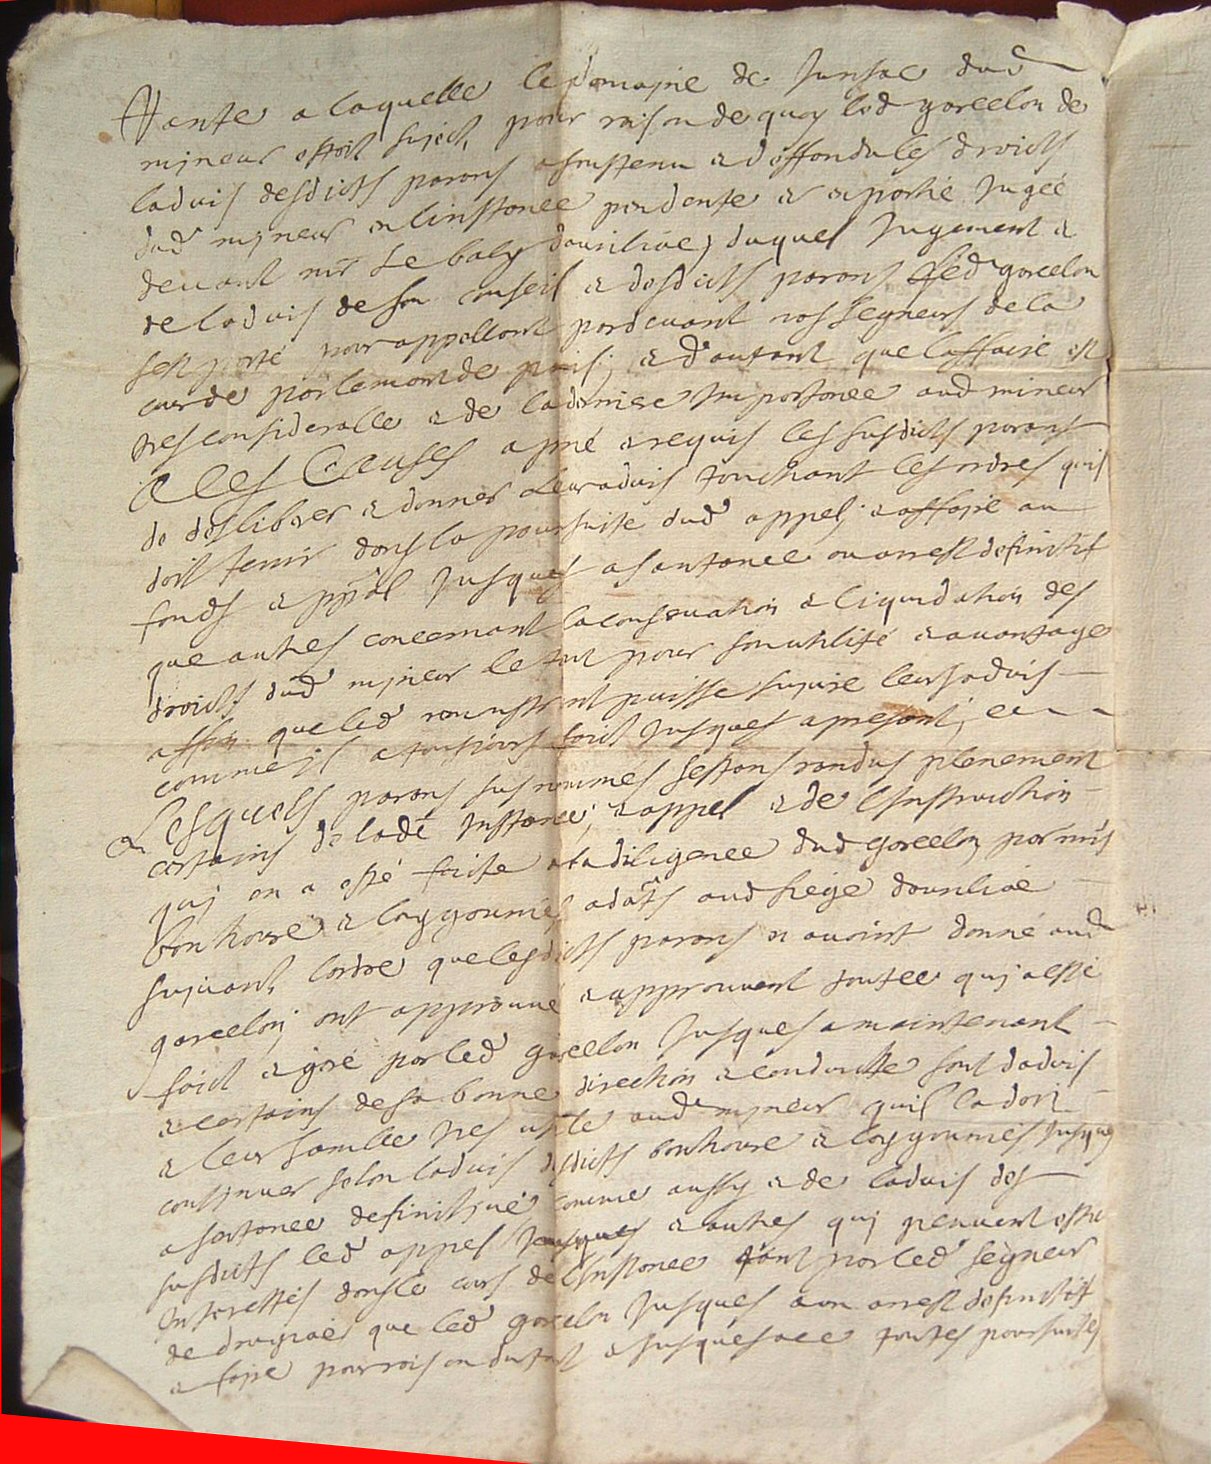 Rante a laquelle le domajne de Junsac dud
mjneur estoit suject, pour raison de quoy led garcelon de
ladvis desdicts parans a soustenu & deffandu les droicts
dud mjneur en linstance pendente & en partie jugée
devant mr le baly dauriliac, duquel jugement &
de ladvis de son conseil & desdicts parans led garcelon
sest porté pour appellant pardevant nos segneurs de la
cour de parlemant de paris; & d'autant que laffaire est
tres considerable & de la derniere Importance aud mineur
& les Causes a prié & requis les susdicts parans
de deslibérer & donner leur advis touchant les ordres quil
doit tenir dans la poursuite dud appel; & affaire au
fonds & ppal jusques a santance ou arrest definitif
que autres concernant la conservation & liquidation des
droicts dud mjneur le tout pour son utilité & avantage
affin que led remonstrant puisse suivre leurs advis
comme jl a tousjours faict jusques a presant, et
Lesquels parans sus nommés sestans randus plenement
certains de lade Instance, & appel & de lInstruction
quj en a esté faicte a la diligence dud garcelon par mrs
bonhoure & laygounies adats aud siege dauriliac
suivant lordre que lesdicts parans en avoint donné aud
garcelon; ont approuvé & approuvent toutce quj a esté
faict & géré par led garcelon jusques a maintenant
& certains de sa bonne direction & conduicte sont dadvis
& leur samble tres utile aud mjneur quil la doit
continuer selon ladvis desdicts bonhoure & laygounies jusques
a santance definitive comme aussy & de ladvis des
susdicts led appel & autres quj peuvent estre
Interessés dans le cours de lInstance tant par led segneur
de drugeac que led garcelon jusques a un arrest definitif
& faire pour raison du tout & jusques a ce toutes poursuites